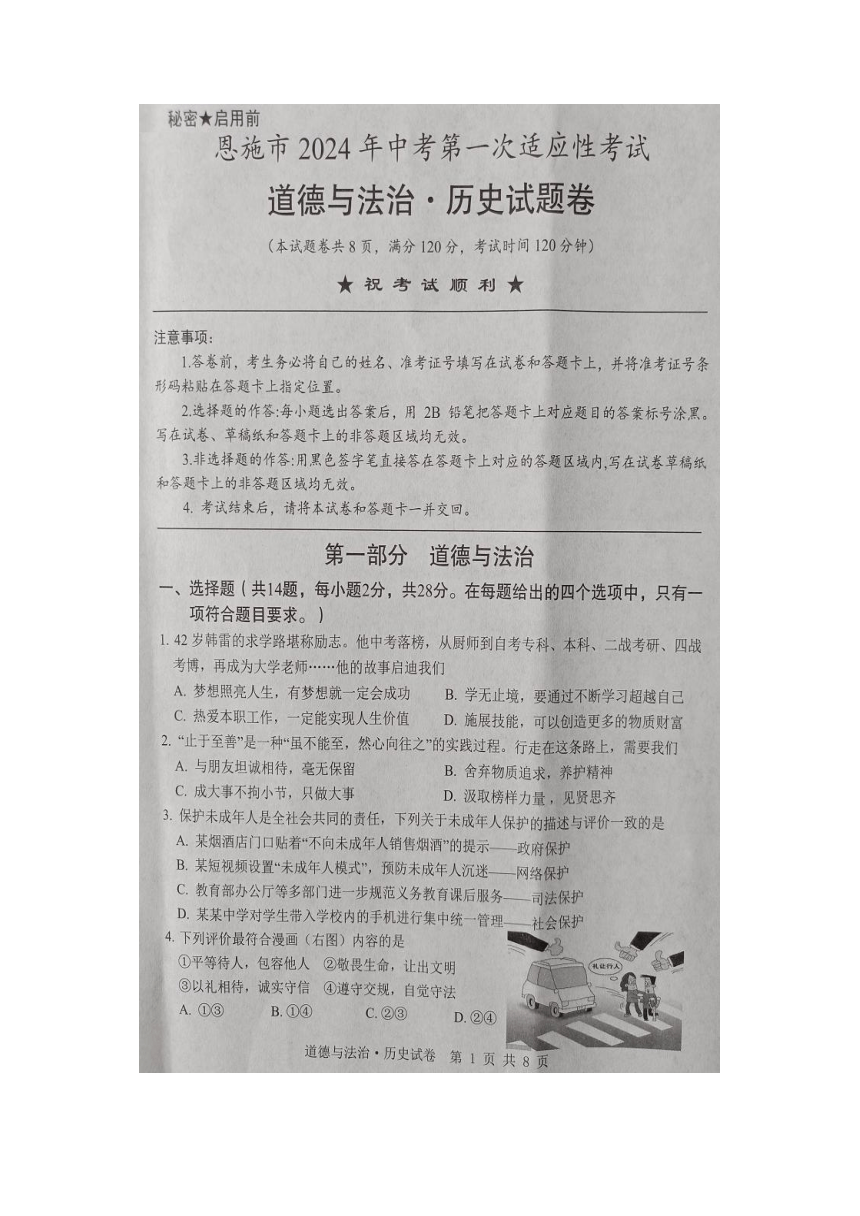 秘密★启用前
恩施市 2024 年中考第一次适应性考试
道德与法治·历史试题卷
（本试题卷共 8 页，满分 120 分，考试时间 120 分钟）
★ 祝 考 试 顺 利 ★
注意事项：
1.答卷前，考生务必将自己的姓名、准考证号填写在试卷和答题卡上，并将准考证号条
形码粘贴在答题卡上指定位置。
2.选择题的作答:每小题选出答案后，用 2B 铅笔把答题卡上对应题目的答案标号涂黑。
写在试卷、草稿纸和答题卡上的非答题区域均无效。
3.非选择题的作答:用黑色签字笔直接答在答题卡上对应的答题区域内,写在试卷草稿纸
和答题卡上的非答题区域均无效。
4. 考试结束后，请将本试卷和答题卡一并交回。
第一部分 道德与法治
一、选择题（共14题，每小题2分，共28分。在每题给出的四个选项中，只有一
项符合题目要求。）
1. 42 岁韩雷的求学路堪称励志。他中考落榜，从厨师到自考专科、本科、二战考研、四战
考博，再成为大学老师……他的故事启迪我们
A. 梦想照亮人生，有梦想就一定会成功 B. 学无止境，要通过不断学习超越自己
C. 热爱本职工作，一定能实现人生价值 D. 施展技能，可以创造更多的物质财富
2. “止于至善”是一种“虽不能至，然心向往之”的实践过程。行走在这条路上，需要我们
A. 与朋友坦诚相待，毫无保留 B. 舍弃物质追求，养护精神
C. 成大事不拘小节，只做大事 D. 汲取榜样力量，见贤思齐
3. 保护未成年人是全社会共同的责任，下列关于未成年人保护的描述与评价一致的是
A. 某烟酒店门口贴着“不向未成年人销售烟酒”的提示——政府保护
B. 某短视频设置“未成年人模式”，预防未成年人沉迷——网络保护
C. 教育部办公厅等多部门进一步规范义务教育课后服务——司法保护
D. 某某中学对学生带入学校内的手机进行集中统一管理——社会保护
4. 下列评价最符合漫画（右图）内容的是
①平等待人，包容他人 ②敬畏生命，让出文明
③以礼相待，诚实守信 ④遵守交规，自觉守法
A. ①③ B. ①④ C. ②③ D. ②④
礼让行人
道德与法治·历史试卷 第 1 页 共 8 页